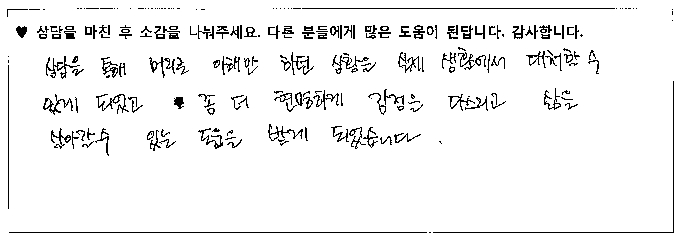 ♥ 상담을 마친 후 소감을 나눠주세요. 다른 분들에게 많은 도움이 된답니다. 감사합니다.
상담을 통해 머리로 이해만 하던 상황을 실제 생활에서 대처할 수
있게 되었고 좀 더 현명하게 감정을 다스리고 삶을
살아갈 수 있는 도움을 받게 되었습니다.